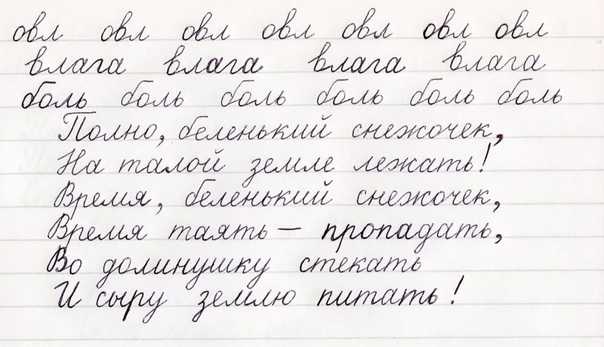 овл овл овл овл овл овл овл
влага влага влага влага
боль боль боль боль боль боль
Полно, беленький снежочек,
На талой земле лежать!
Время, беленький снежочек,
Время таять — пропадать,
Во долинушку стекать
И сыру землю питать!